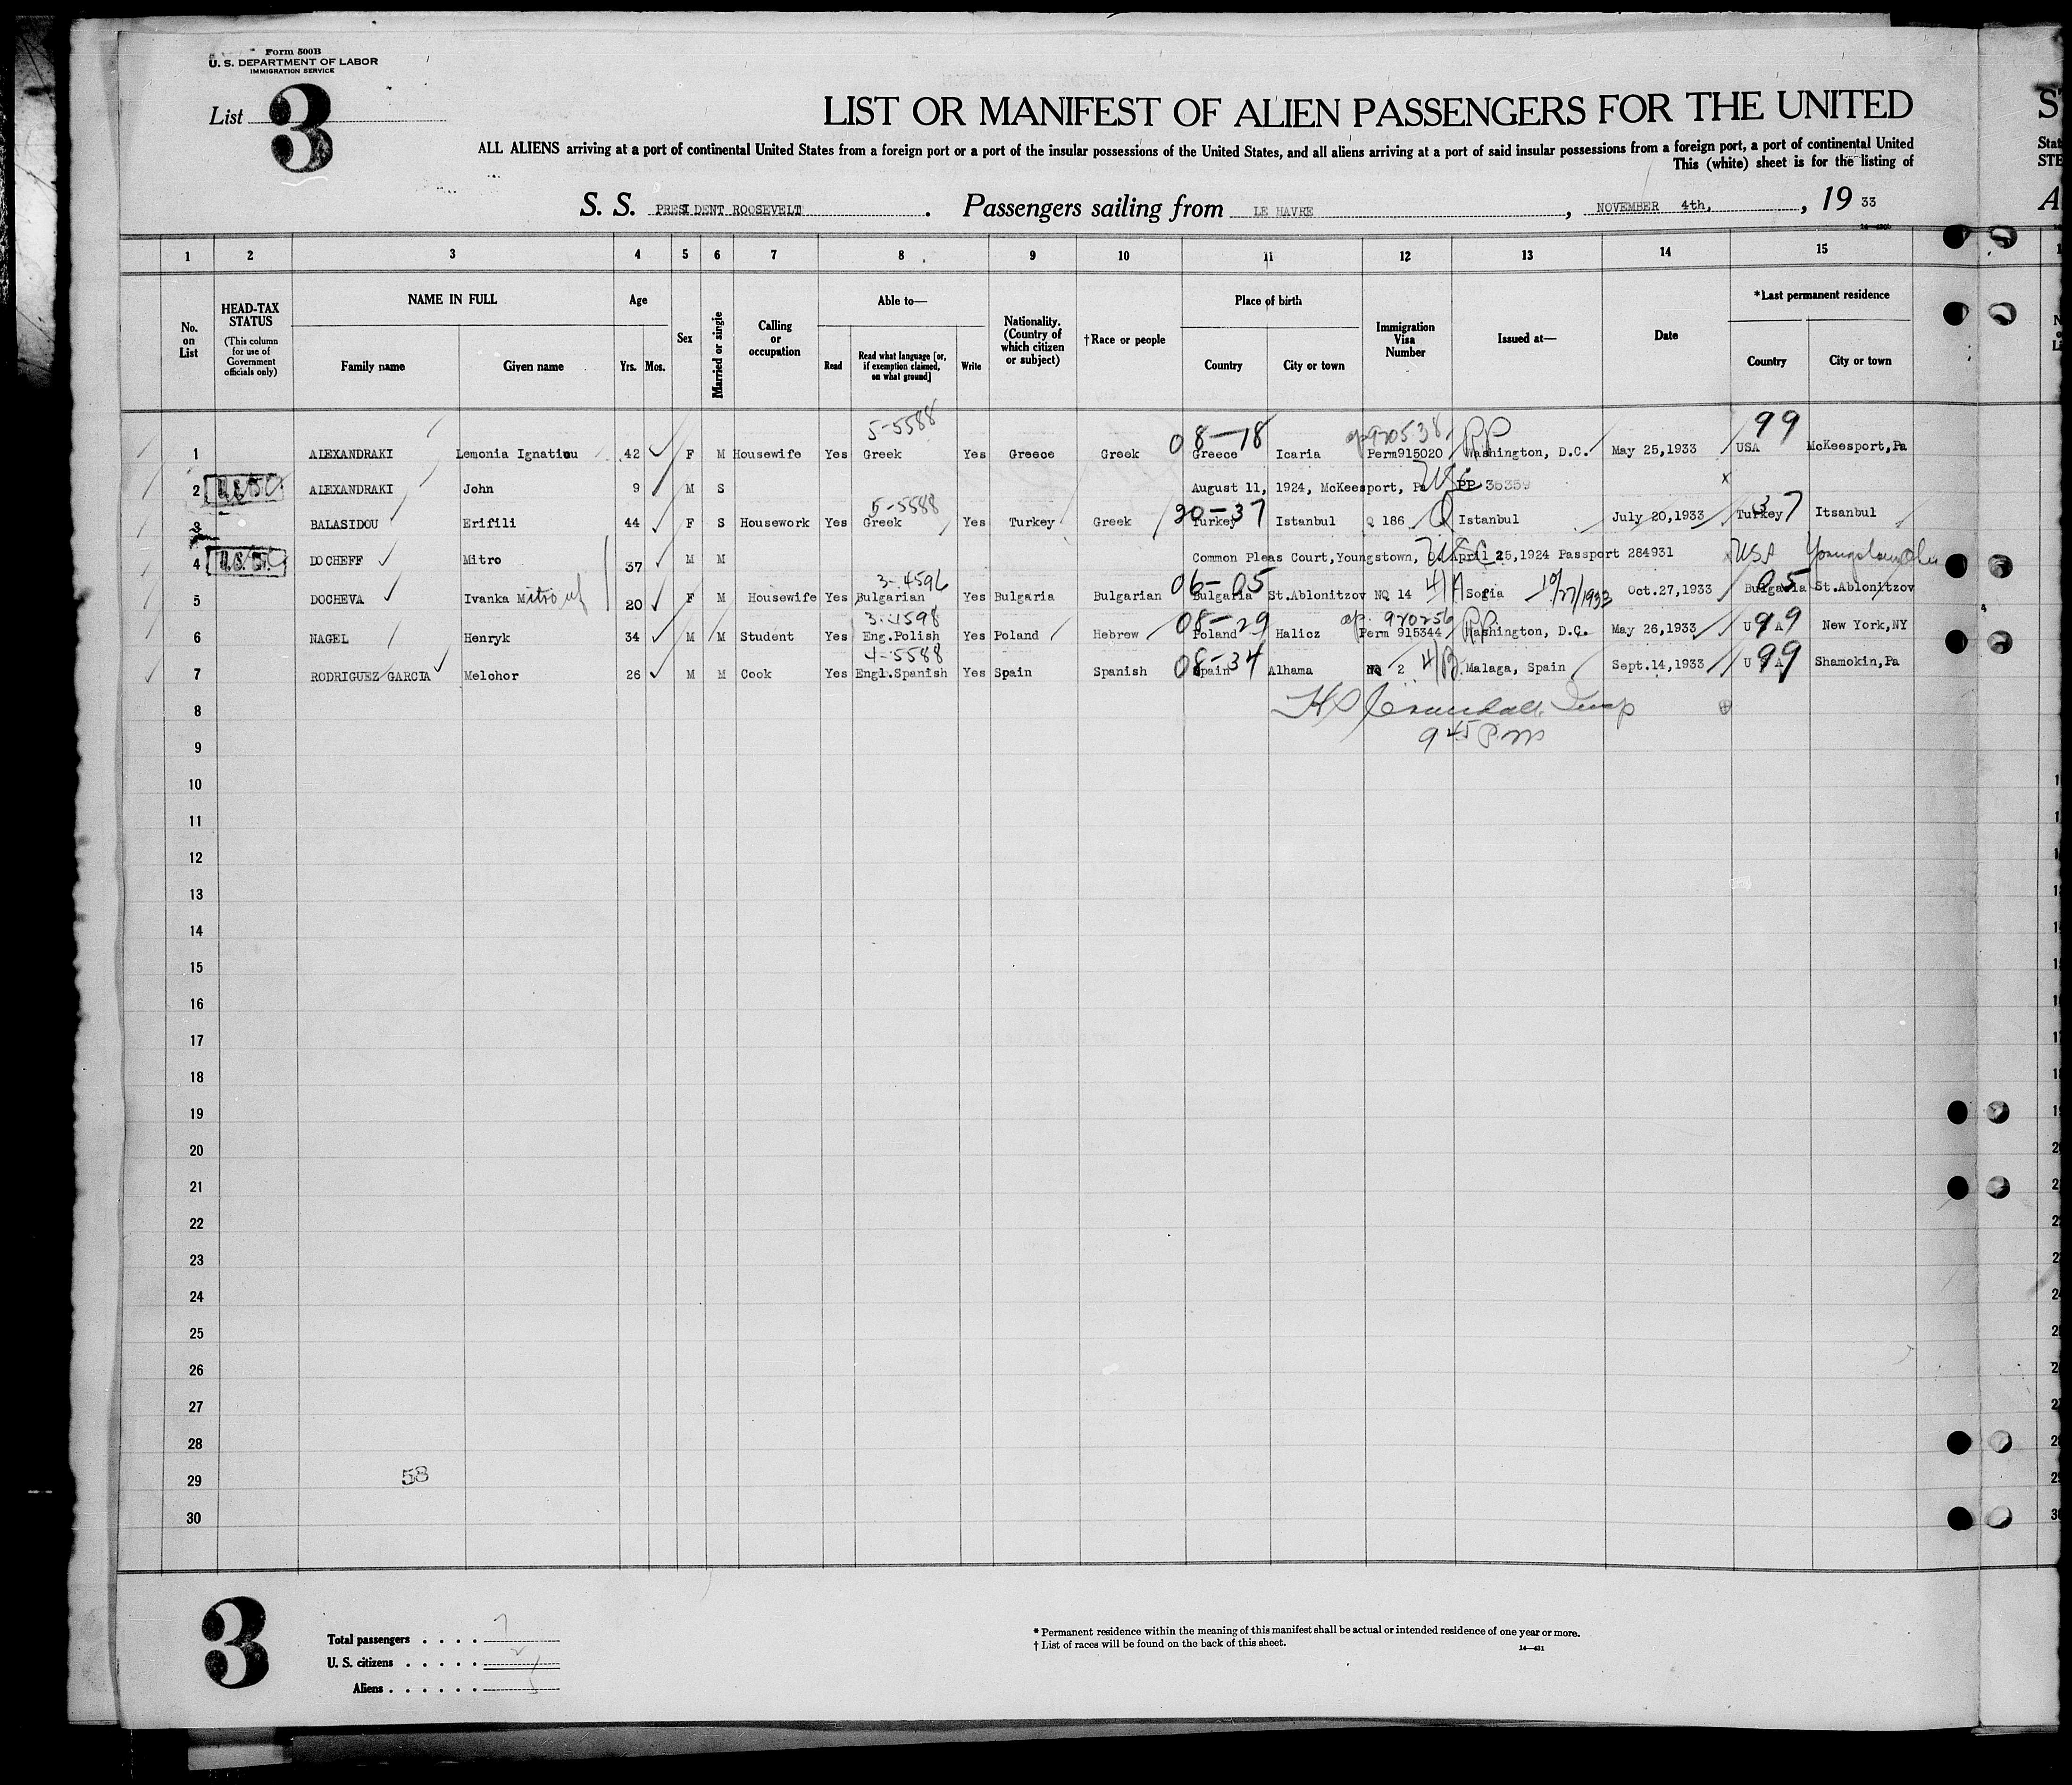 Form 500B
U. S. DEPARTMENT OF LABOR
IMMIGRATION SERVICE
List 3
LIST OR MANIFEST OF ALIEN PASSENGERS FOR THE UNITED
ALL ALIENS arriving at a port of continental United States from a foreign port or a port of the insular possessions of the United States, and all aliens arriving at a port of said insular possessions from a foreign port, a port of continental United
This (white) sheet is for the listing of
S. S. PRESIDENT ROOSEVELT . Passengers sailing from LE HAVRE , NOVEMBER 4th, , 19 33
1 2 3 4 5 6 7 8 9 10 11 12 13 14 15
No. on List
HEAD-TAX STATUS
(This column for use of Government officials only)
NAME IN FULL
Family name Given name
Age
Yrs. Mos.
Sex
Married or single
Calling or occupation
Able to—
Read Read what language [or, if exemption claimed, on what ground] Write
Nationality. (Country of which citizen or subject)
†Race or people
Place of birth
Country City or town
Immigration Visa Number
Issued at—
Date
*Last permanent residence
Country City or town
5-5588 08-18 970538 99
1 ALEXANDRAKI Lemonia Ignatiou 42 F M Housewife Yes Greek Yes Greece Greek Greece Icaria Perm915020 Washington, D.C. May 25,1933 USA McKeesport,Pa
2 ALEXANDRAKI John 9 M S August 11, 1924, McKeesport, Pa USC PP 35359 x
5-5588 20-37 37
3 BALASIDOU Erifili 44 F S Housework Yes Greek Yes Turkey Greek Turkey Istanbul Q 186 Q Istanbul July 20,1933 Turkey Itsanbul
4 DOCHEFF Mitro 37 M M Common Pleas Court,Youngstown, O. USC April 25,1924 Passport 284931 x USA Youngstown Ohio
3-4596 06-05 4/A 10/27/1933 05
5 DOCHEVA Ivanka Mitro 20 F M Housewife Yes Bulgarian Yes Bulgaria Bulgarian Bulgaria St.Ablonitzov NQ 14 Sofia Oct.27,1933 Bulgaria St.Ablonitzov
3-4598 08-29 970256 99
6 NAGEL Henryk 34 M M Student Yes Eng.Polish Yes Poland Hebrew Poland Halicz Perm 915344 Washington, D.C. May 26,1933 U S A New York,NY
4-5588 08-34 4/B 99
7 RODRIGUEZ GARCIA Melchor 26 M M Cook Yes Engl.Spanish Yes Spain Spanish Spain Alhama NQ 2 Malaga, Spain Sept.14,1933 U S A Shamokin,Pa
8 Crandall Insp
9 9 45 P.m
10
11
12
13
14
15
16
17
18
19
20
21
22
23
24
25
26
27
28
29 58
30
3
Total passengers . . . . 7
U. S. citizens . . . . . 2
Aliens . . . . . . 5
* Permanent residence within the meaning of this manifest shall be actual or intended residence of one year or more.
† List of races will be found on the back of this sheet.
14—431